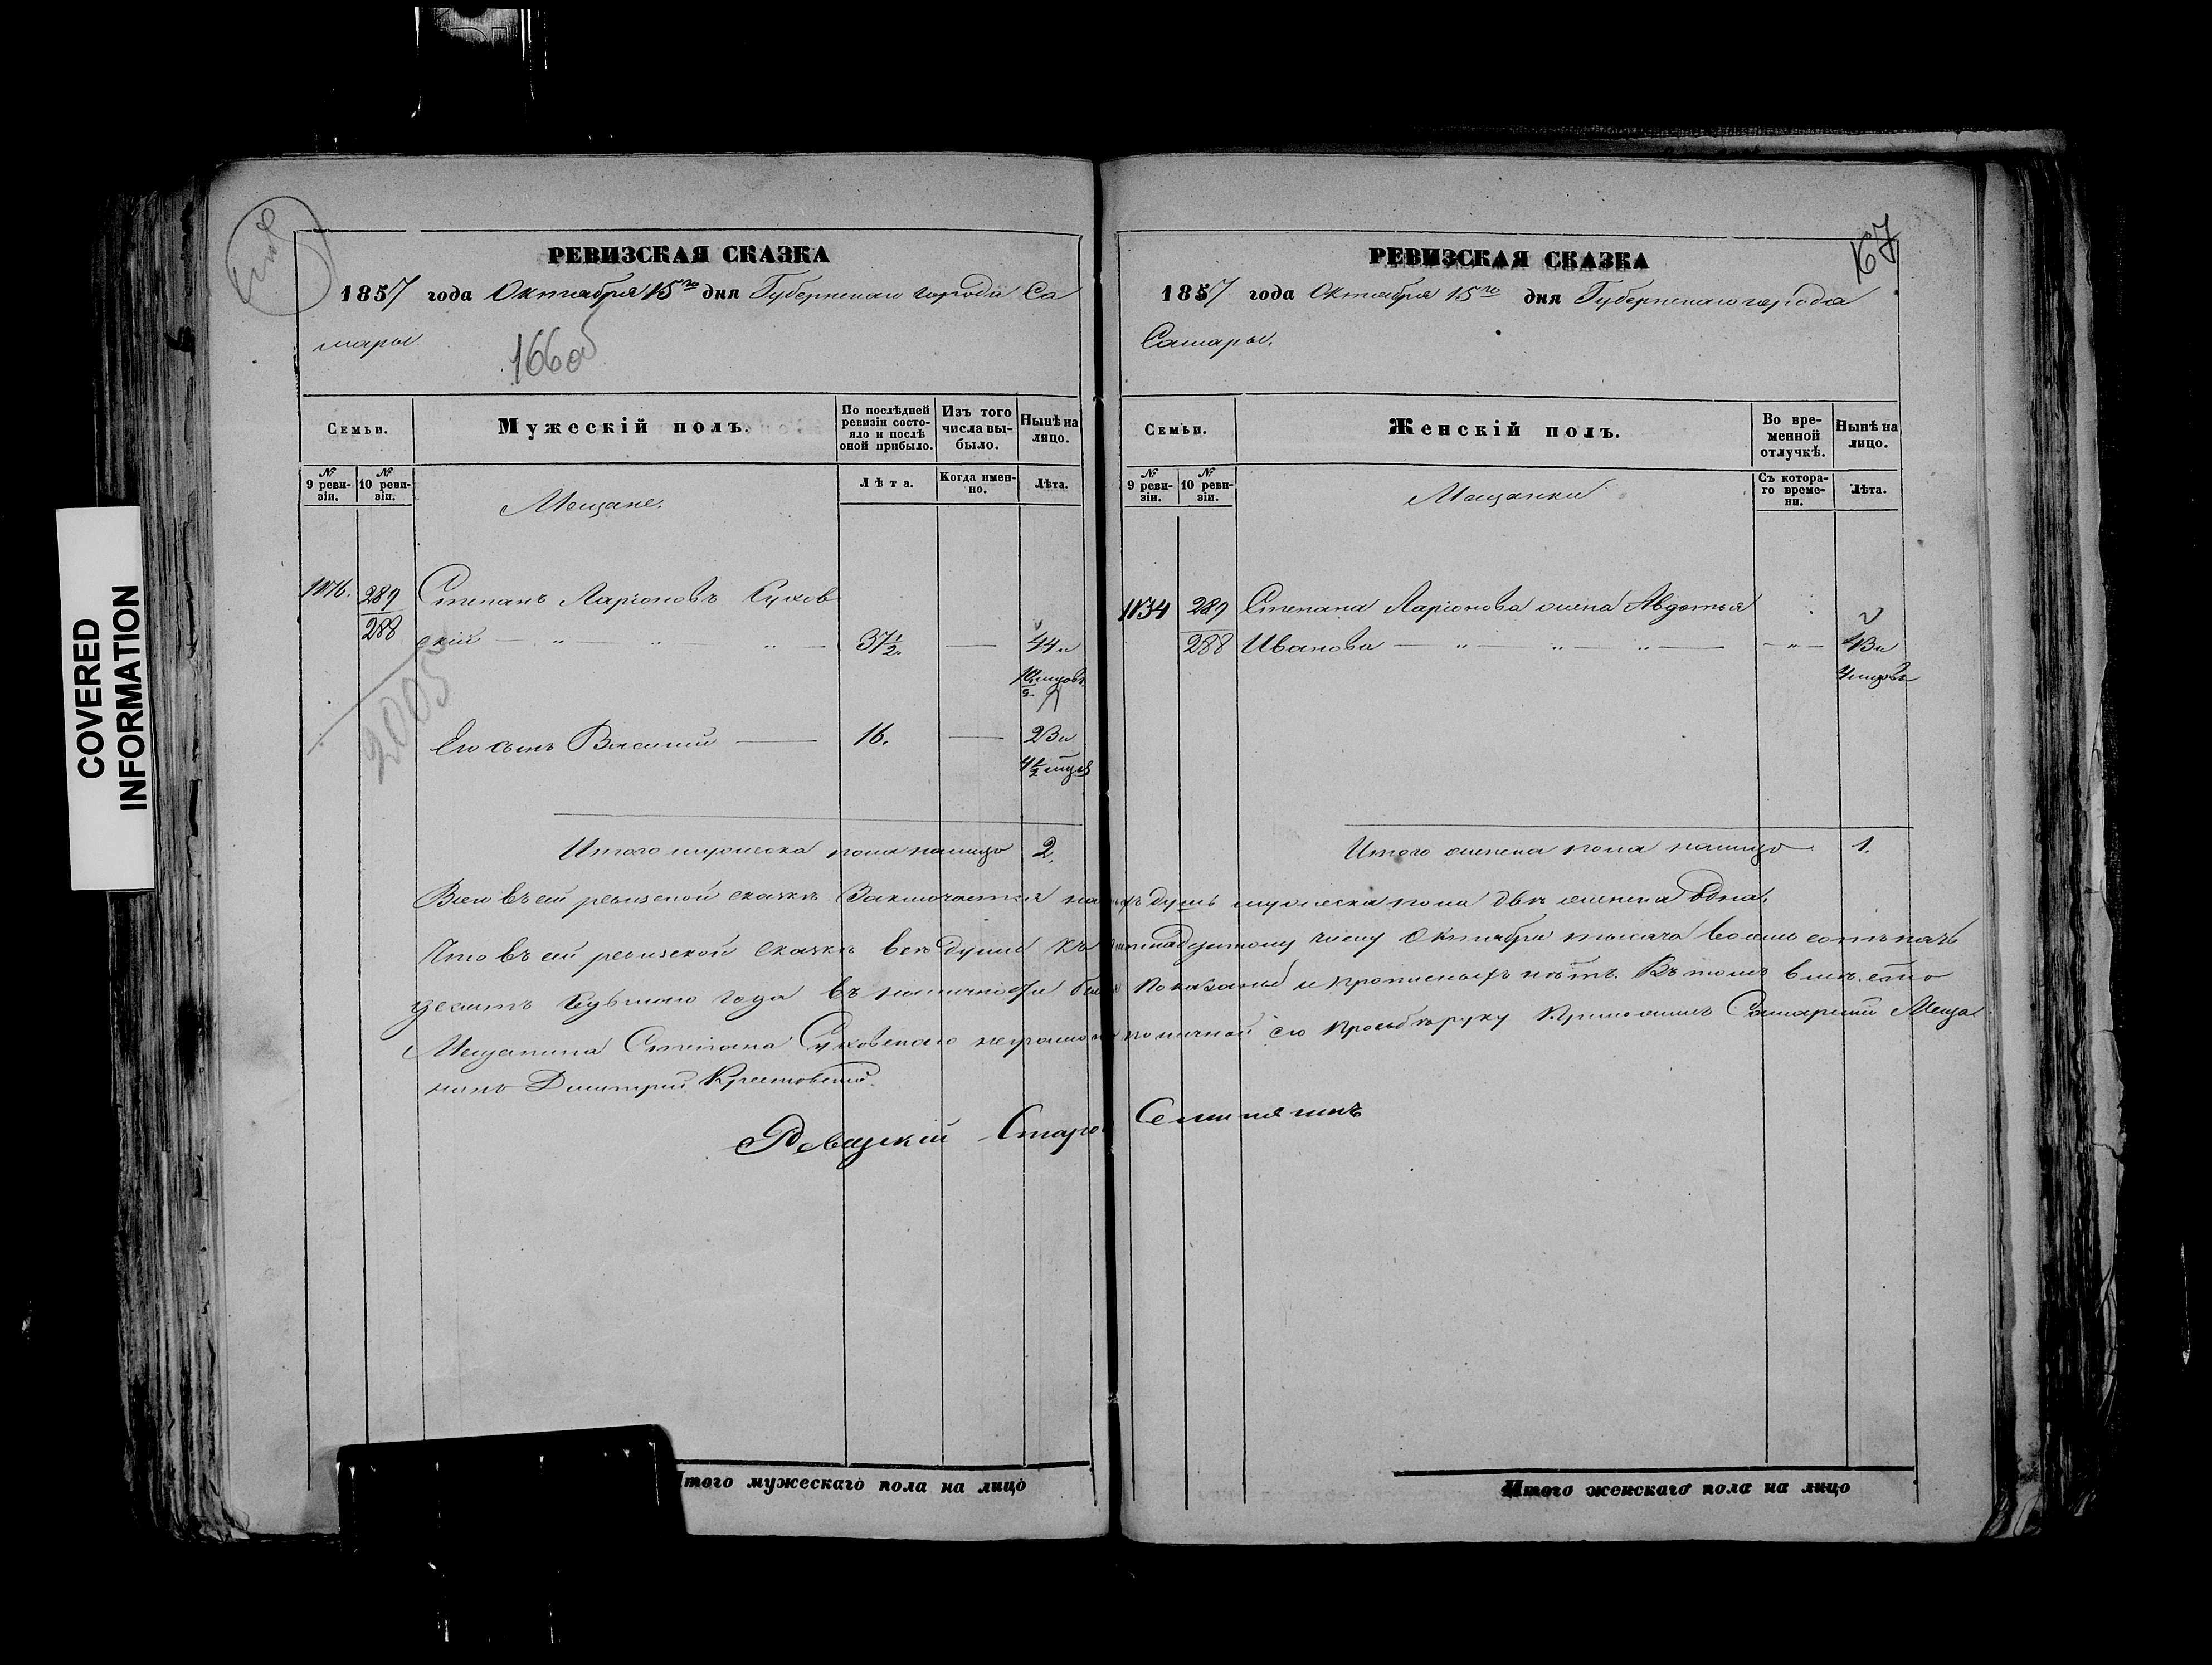 COVERED
INFORMATION
РЕВИЗСКАЯ СКАЗКА
1857 года Октября 15го дня Губернскаго города Са
мары
166об
Семьи.
Мужескій полъ.
По послѣдней ревизіи состояло и послѣ оной прибыло.
Изъ того числа выбыло.
Нынѣ на лицо.
№ 9 ревизіи.
№ 10 ревизіи.
Мещане.
Лѣта.
Когда именно.
Лѣта.
289 Степанъ Ларіоновъ Сухов
288 скій 37½. 44 и
2005
Его сынъ Василій 16. 23 и
4½ мцов
Итого мужеска пола налицо 2.
РЕВИЗСКАЯ СКАЗКА
167
1857 года Октября 15го дня Губернскаго города
Самары.
Семьи.
Женскій полъ.
Во временной отлучкѣ.
Нынѣ на лицо.
№ 9 ревизіи.
№ 10 ревизіи.
Мещанки
Съ котораго времени.
Лѣта.
1134 289 Степана Ларіонова жена Авдотья
288 Иванова 43 и
4 мцовъ
Итого женска пола налицо 1.
Всего въ сей ревизской сказкѣ Заключается душъ мужеска пола двѣ женска Одна,
Что въ сей ревизской Сказкѣ всѣ души къ пятнадцатому числу Октября тысяча восемь сотъ пять
десятъ седьмаго года въ наличности были показаны и прописныхъ нѣтъ. Въ томъ вмѣсто
Мещанина Степана Суховскаго по личной его прозьбѣ руку Приложилъ Самарский Меща
нинъ Дмитрий Крестовский.
Ревизскій Старо
Итого мужескаго пола на лицо
Итого женскаго пола на лицо